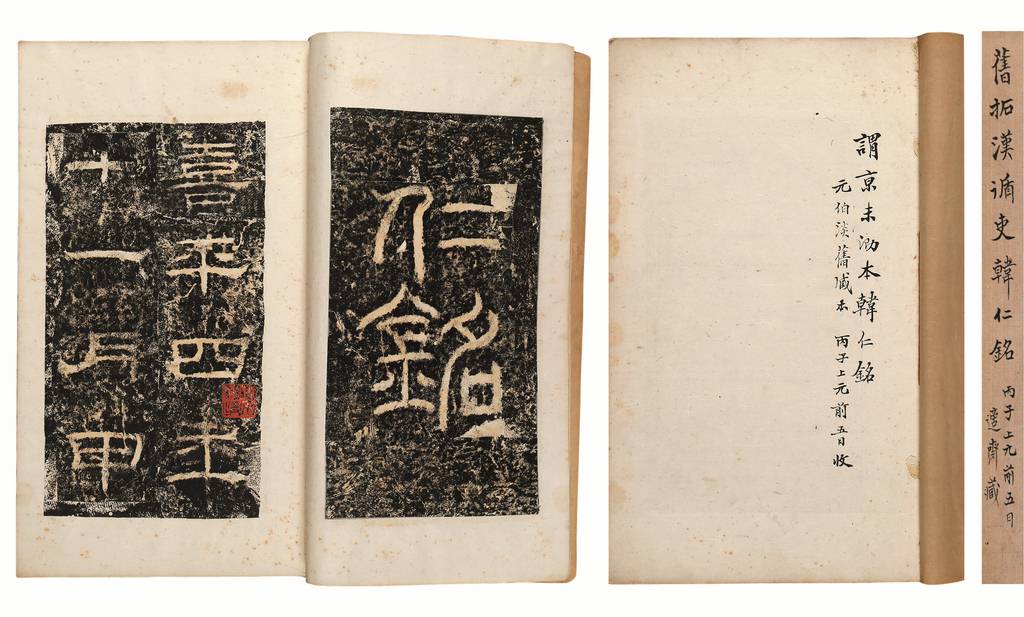 舊拓漢循吏韓仁銘
丙子上元前五日
齋藏
謂京未泐本韓仁銘
元伯淡舊臧本 丙子上元前五日收
仁銘
熹平四年
十一月甲